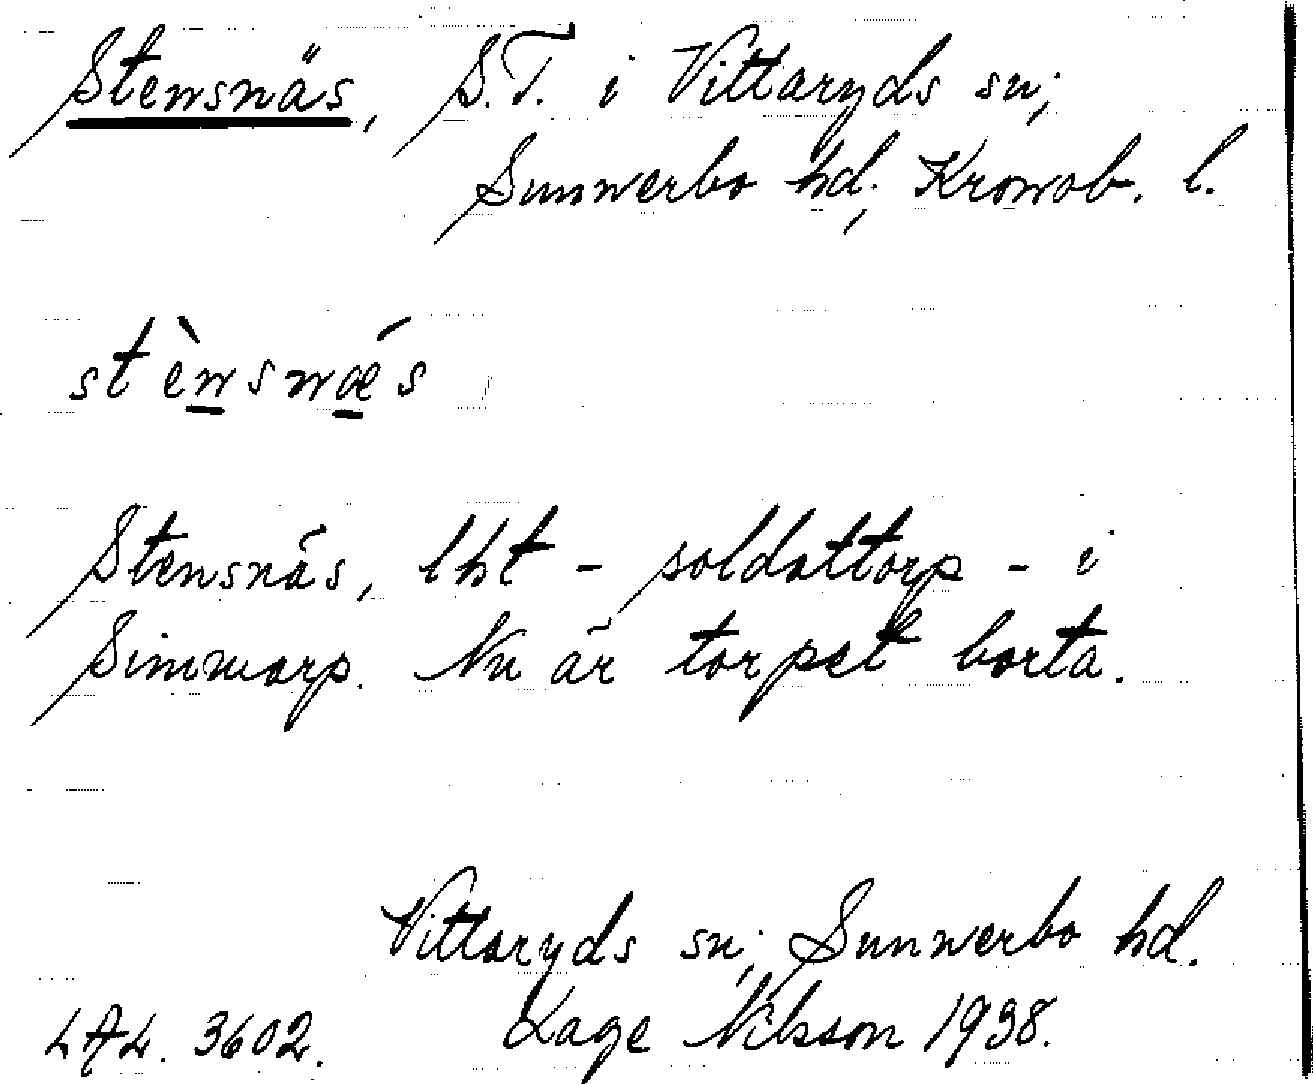 Stensnäs, S.T. i Vittaryds sn;
Sunnerbo hd; Kronob. l.
stènsnǽs
Stensnäs, lht - soldattorp - i
Simmarp. Nu är torpet borta.
Vittaryds sn; Sunnerbo hd.
LAL. 3602. Lage Nilsson 1938.